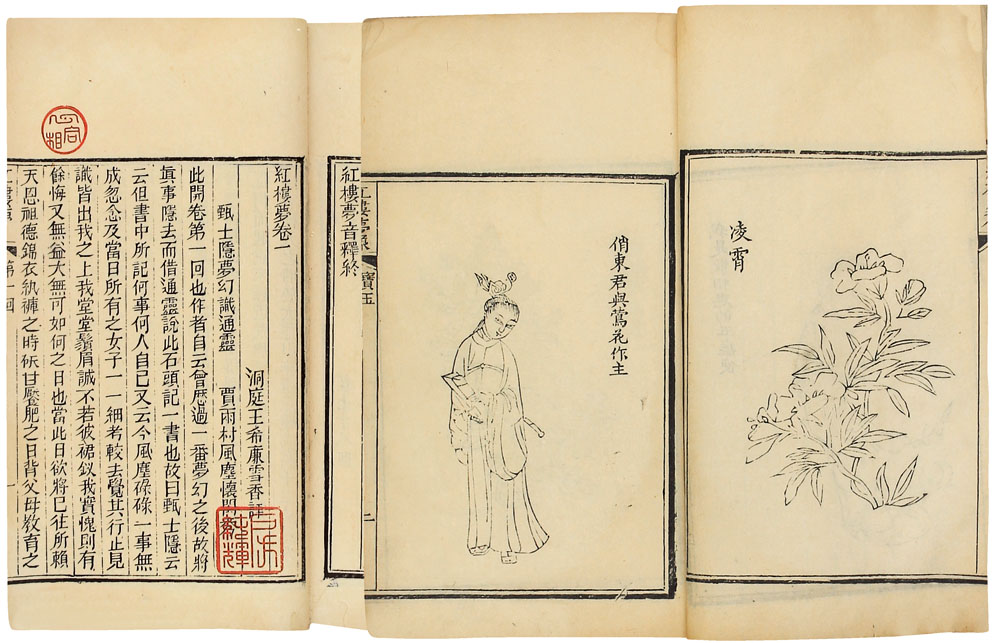 凌霄
俏東君與鶯花作主
寶玉
紅樓夢音釋終
紅樓夢卷一
洞庭王希廉雪香評
甄士隱夢幻識通靈 賈雨村風塵懷閨秀
此開卷第一回也作者自云曾歷過一番夢幻之後故將
眞事隱去而借通靈說此石頭記一書也故曰甄士隱云
云但書中所記何事何人自己又云今風塵碌碌一事無
成忽念及當日所有之女子一一細考較去覺其行止見
識皆出我之上我堂堂鬚眉誠不若彼裙釵我實愧則有
餘悔又無益大無可如何之日也當此日欲將已往所賴
天恩祖德錦衣紈褲之時飫甘饜肥之日背父母教育之
第一回